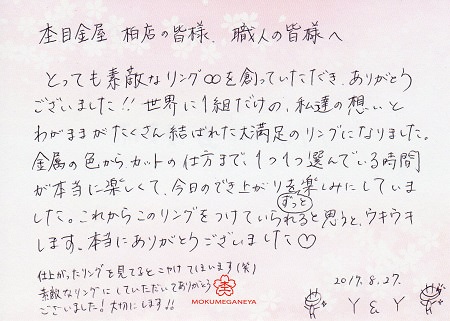 杢目金屋 柏店の皆様、職人の皆様へ
とっても素敵なリング∞を創っていただき、ありがとう
ございました!! 世界に1組だけの、私達の想いと
わがままがたくさん結ばれた大満足のリングになりました。
金属の色から、カットの仕方まで、1つ1つ選んでいる時間
が本当に楽しくて、今日のでき上がりを楽しみにしていま
した。これからこのリングをずっとつけていられると思うと、ウキウキ
します。本当にありがとうございました♡
仕上がったリングを見てるとにやけてしまいます(笑)
素敵なリングにしていただいてありがとう
ございました!大切にします!!
MOKUMEGANEYA
2017.8.27.
Y & Y